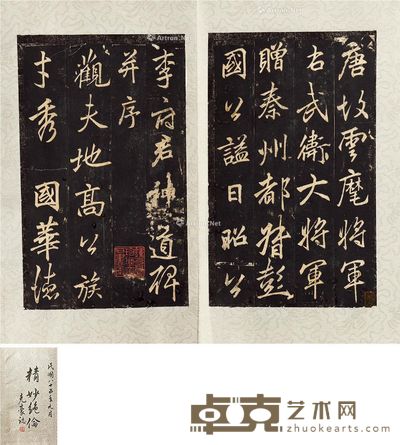 唐故雲麾將軍
右武衛大將軍
贈秦州都督彭
國公謚曰昭公
李府君神道碑
并序
觀夫地高公族
才秀 國華德
精妙絕倫
卓克艺术网
zhuokearts.com